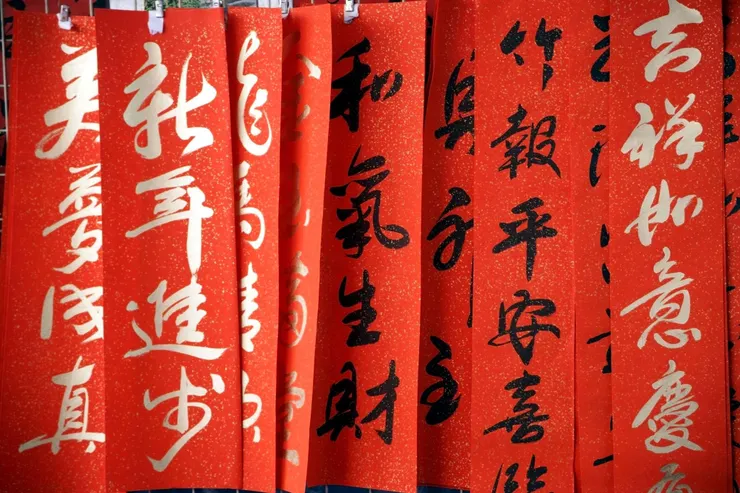 美夢成真
新年進步
龍馬精神
金玉滿堂
和氣生財
竹報平安喜臨
吉祥如意慶